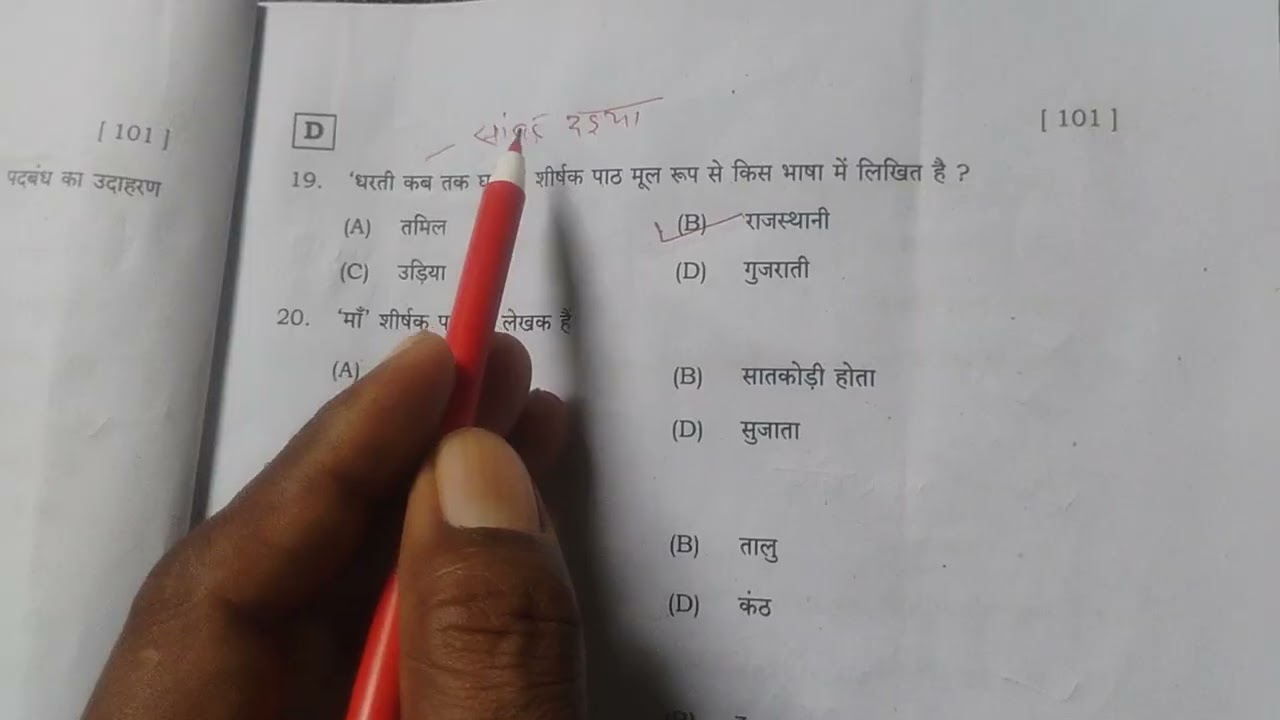 [ 101 ]
पदबंध का उदाहरण
D
दइया
[ 101 ]
19. 'धरती कब तक शीर्षक पाठ मूल रूप से किस भाषा में लिखित है ?
(A) तमिल (B) राजस्थानी
(C) उड़िया (D) गुजराती
20. 'माँ' शीर्षक लेखक हैं
(A) (B) सातकोड़ी होता
(D) सुजाता
(B) तालु
(D) कंठ